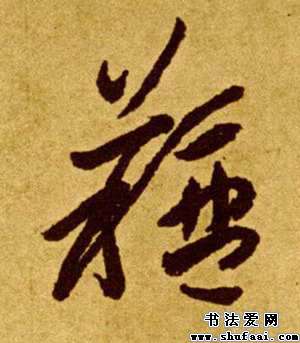 蘓
书法爱网
www.shufaai.com